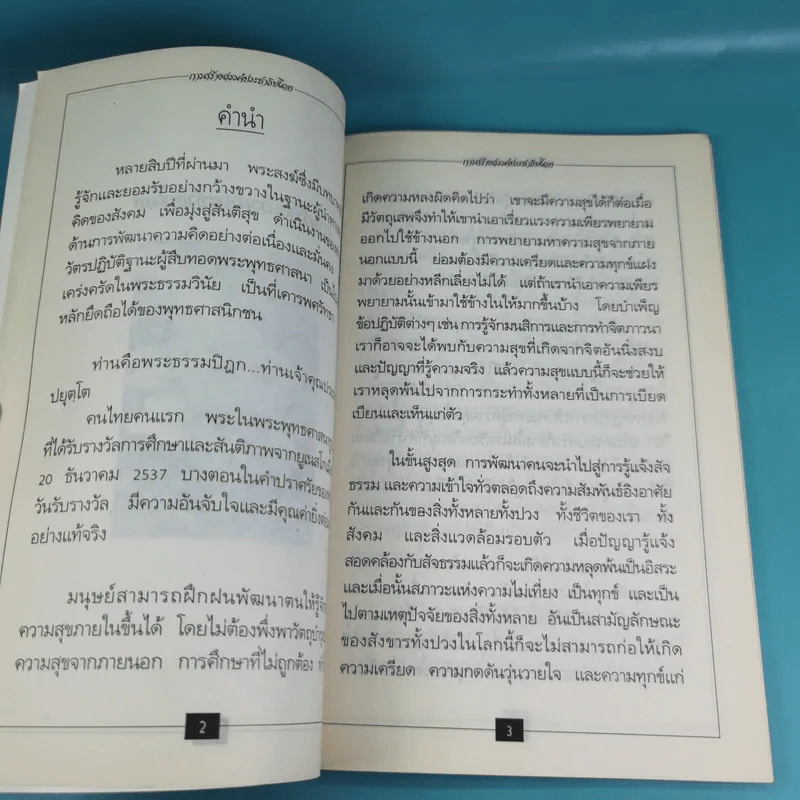 การสร้างสรรค์ประชาธิปไตย
คำนำ
หลายสิบปีที่ผ่านมา พระสงฆ์ซึ่งมีบทบาท
รู้จักและยอมรับอย่างกว้างขวางในฐานะผู้นำทาง
คิดของสังคม เพื่อมุ่งสู่สันติสุข ดำเนินงาน
ด้านการพัฒนาความคิดอย่างต่อเนื่องและมั่นคง
วัตรปฏิบัติฐานะผู้สืบทอดพระพุทธศาสนา
เคร่งครัดในพระธรรมวินัย เป็นที่เคารพศรัทธา
หลักยึดถือได้ของพุทธศาสนิกชน
ท่านคือพระธรรมปิฎก...ท่านเจ้าคุณ
ปยุตฺโต
คนไทยคนแรก พระในพระพุทธศาสนา
ที่ได้รับรางวัลการศึกษาและสันติภาพจากยูเนสโก
20 ธันวาคม 2537 บางตอนในคำปราศรัยของ
วันรับรางวัล มีความอันจับใจและมีคุณค่ายิ่ง
อย่างแท้จริง
มนุษย์สามารถฝึกฝนพัฒนาตนให้รู้จัก
ความสุขภายในขึ้นได้ โดยไม่ต้องพึ่งพาวัตถุบำรุง
ความสุขจากภายนอก การศึกษาที่ไม่ถูกต้อง
2
การสร้างสรรค์ประชาธิปไตย
เกิดความหลงผิดคิดไปว่า เขาจะมีความสุขได้ก็ต่อเมื่อ
มีวัตถุเสพจึงทำให้เขานำเอาเรี่ยวแรงความเพียรพยายาม
ออกไปใช้ข้างนอก การพยายามหาความสุขจากภาย
นอกแบบนี้ ย่อมต้องมีความเครียดและความทุกข์แฝง
มาด้วยอย่างหลีกเลี่ยงไม่ได้ แต่ถ้าเรานำเอาความเพียร
พยายามนั้นเข้ามาใช้ข้างในให้มากขึ้นบ้าง โดยบำเพ็ญ
ข้อปฏิบัติต่างๆ เช่น การรู้จักมนสิการและการทำจิตภาวนา
เราก็อาจจะได้พบกับความสุขที่เกิดจากจิตอันนิ่งสงบ
และปัญญาที่รู้ความจริง แล้วความสุขแบบนี้ก็จะช่วยให้
เราหลุดพ้นไปจากการกระทำทั้งหลายที่เป็นการเบียด
เบียนและเห็นแก่ตัว
ในขั้นสูงสุด การพัฒนาคนจะนำไปสู่การรู้แจ้งสัจ
ธรรม และความเข้าใจทั่วตลอดถึงความสัมพันธ์อิงอาศัย
กันและกันของสิ่งทั้งหลายทั้งปวง ทั้งชีวิตของเรา ทั้ง
สังคม และสิ่งแวดล้อมรอบตัว เมื่อปัญญารู้แจ้ง
สอดคล้องกับสัจธรรมแล้วก็จะเกิดความหลุดพ้นเป็นอิสระ
และเมื่อนั้นสภาวะแห่งความไม่เที่ยง เป็นทุกข์ และเป็น
ไปตามเหตุปัจจัยของสิ่งทั้งหลาย อันเป็นสามัญลักษณะ
ของสังขารทั้งปวงในโลกนี้ก็จะไม่สามารถก่อให้เกิด
ความเครียด ความกดดันวุ่นวายใจ และความทุกข์แก่
3